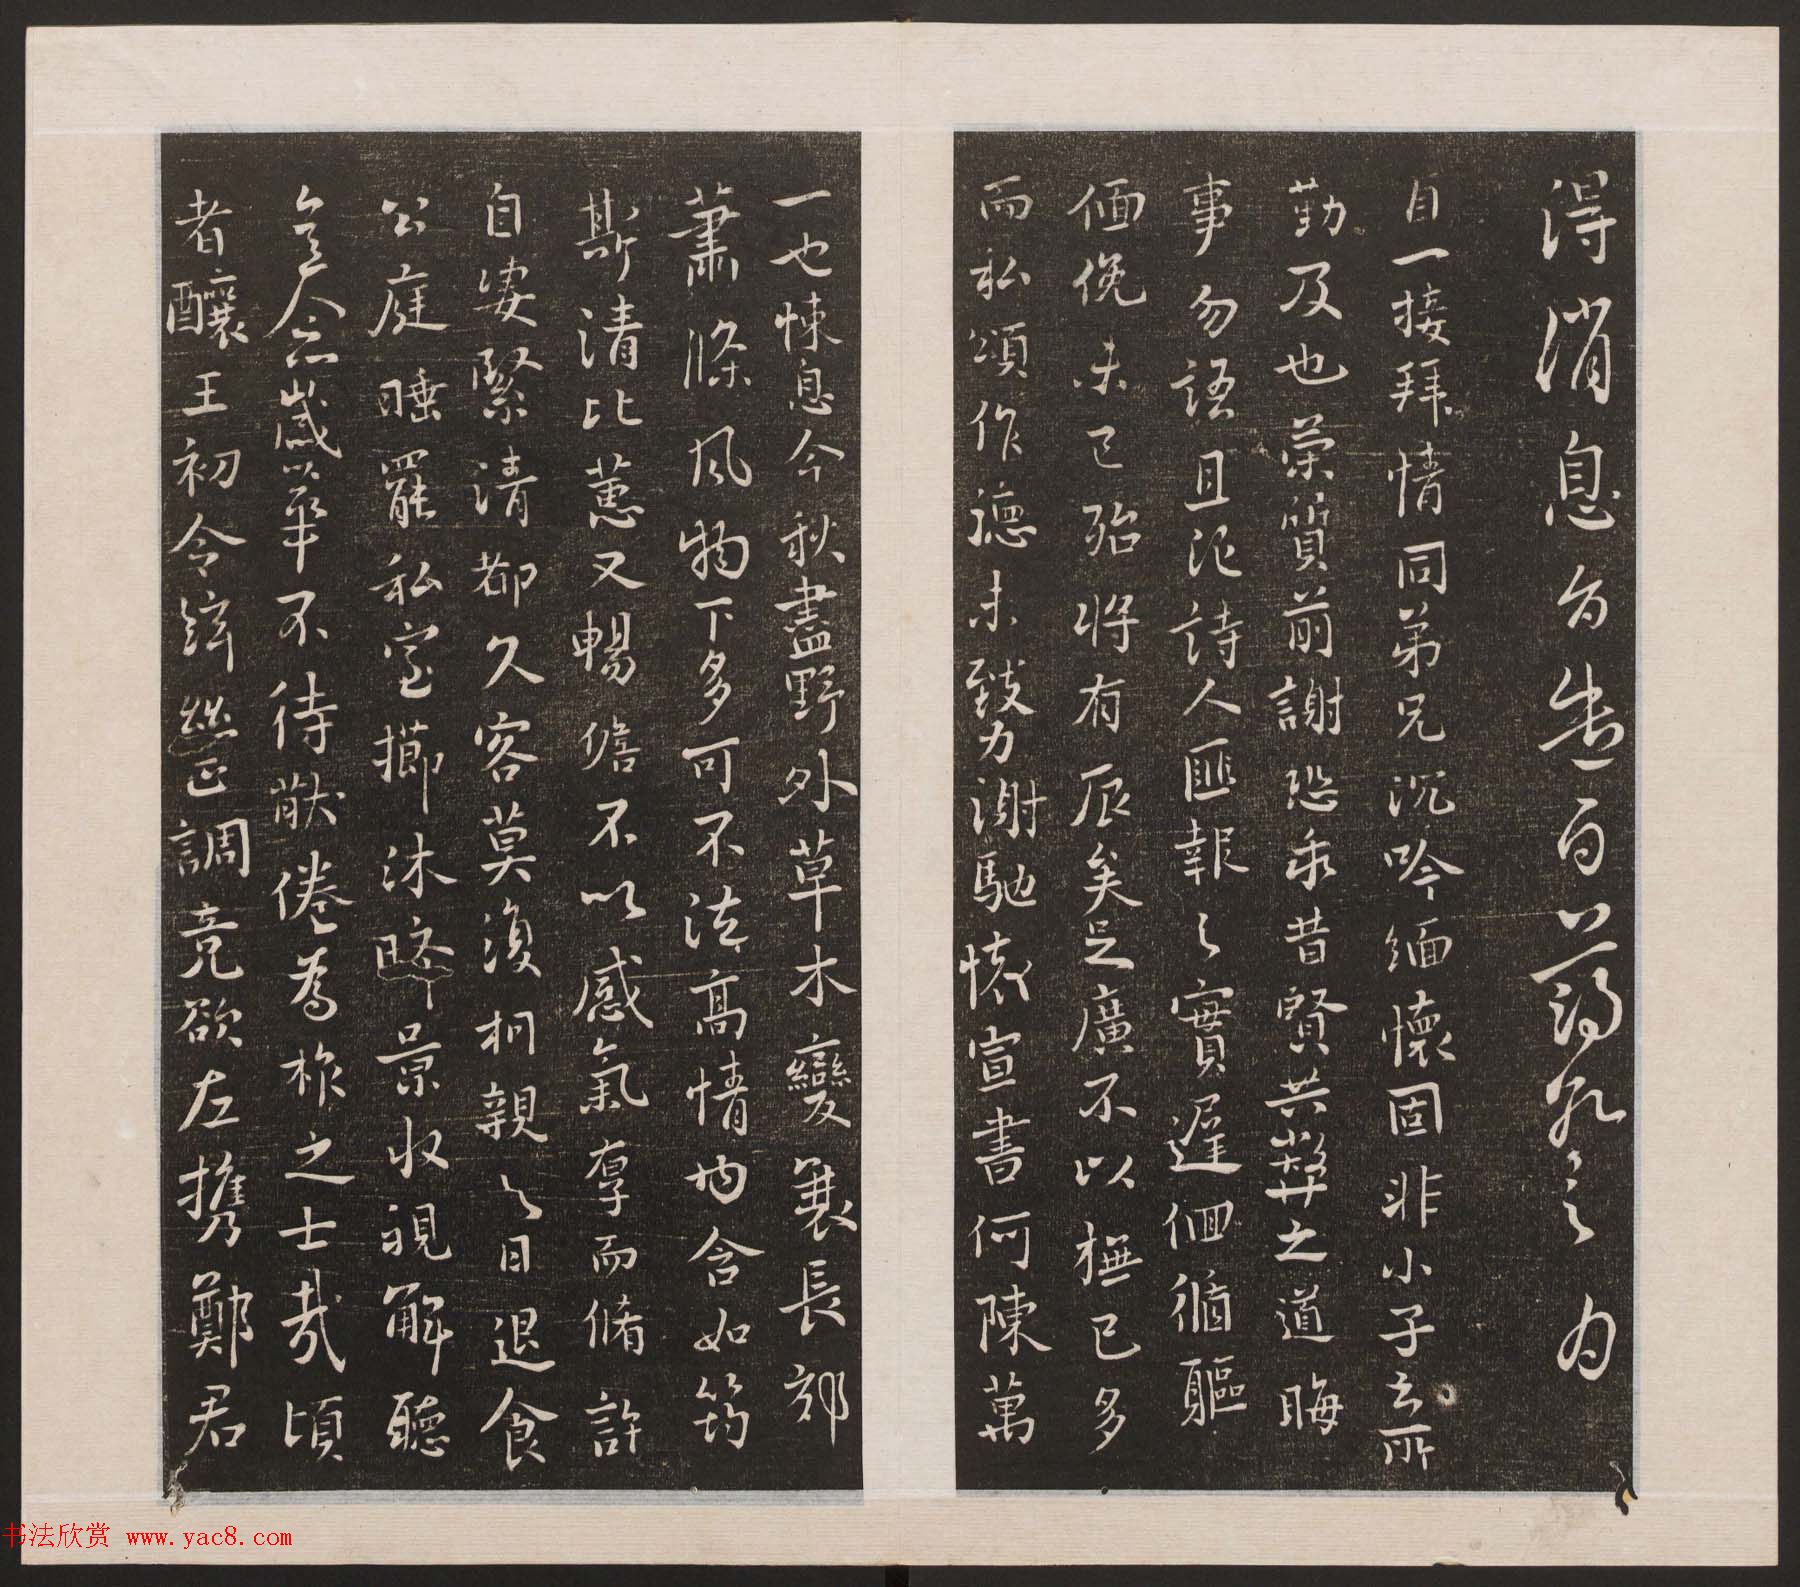 得消息白告一百
自一接拜情同弟兄沉吟緬懷固非小子之所
勤及也蒙質前謝恐乖昔賢共弊之道晦
事勿語且沱詩人匪報之實遲徊循軀
偭俛未已殆將有辰矣足廣不以撫已多
而私頌作德未致力謝馳懷宣書何陳萬
一也悚息今秋盡野外草木變衰長郊
蕭條風物下多可不法高情均含如筠
斯清比蕙又暢儋不以感氣厚而脩許
自婁緊清都久客莫湌桐親之目退食
公庭睡罷私室擳沐略景收視解聽
人念歲華不待猒倦為柞之士哉頃
者釀王初令絲正調竟欲左携鄭君
书法欣赏 www.yac8.com